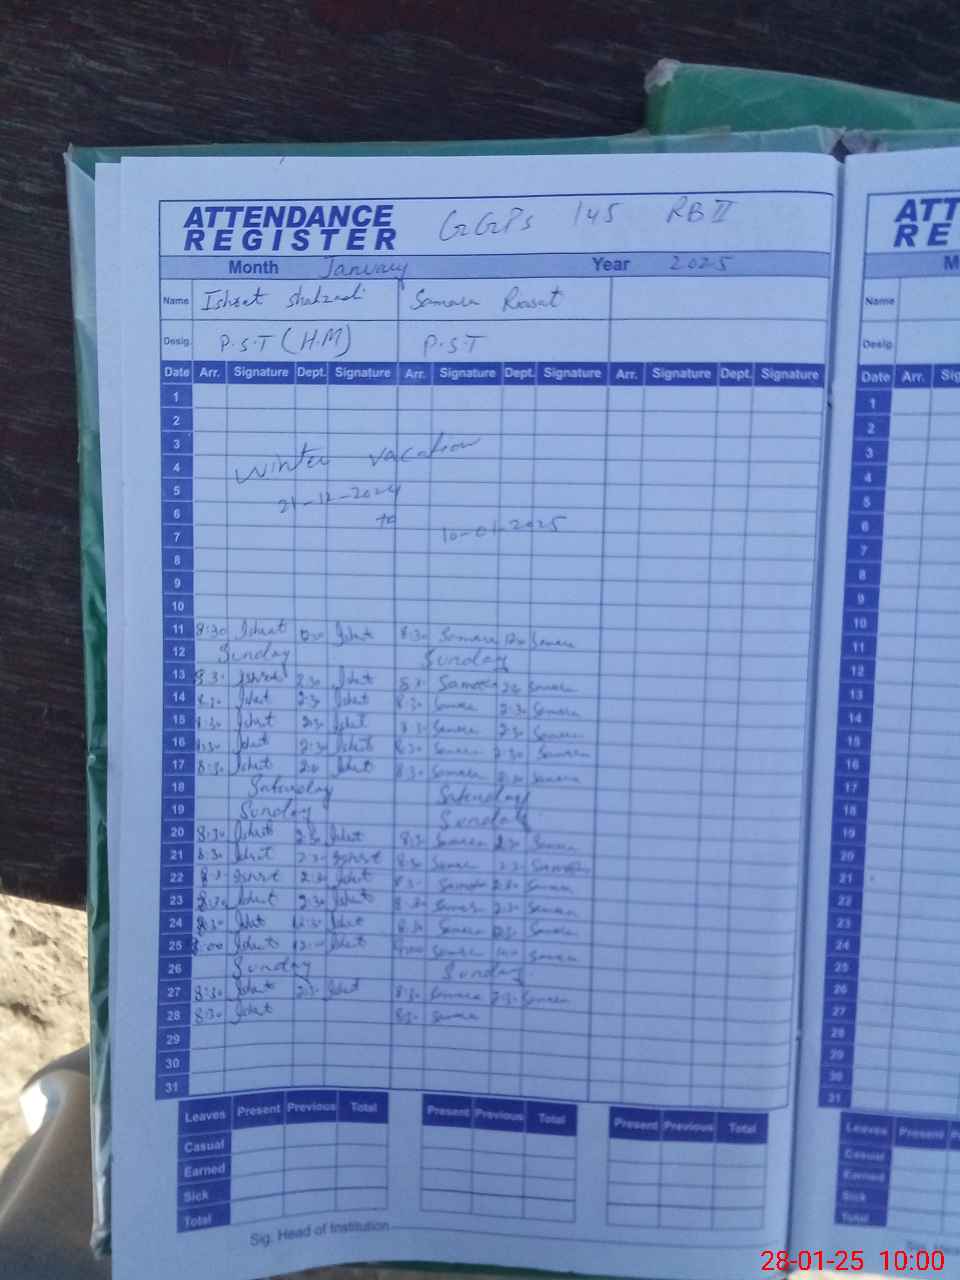 ATTENDANCE
REGISTER
GGPS 145 RB II
Month January Year 2025
Name Ishrat Shahzadi Samara Riasat
Desig. P.S.T (H.M) P.S.T
Date Arr. Signature Dept. Signature Arr. Signature Dept. Signature Arr. Signature Dept. Signature
1
2
3
4
winter vacation
5
21-12-2024
6
to
7
10-01-2025
8
9
10
11 8:30 Ishrat Ishrat 8:30 Samara Samara
12 Sunday Sunday
13 8:30 Ishrat 2:30 Ishrat Samara 2:30 Samara
14 8:30 Ishrat 2:30 Ishrat 8:30 Samara 2:30 Samara
15 8:30 Ishrat 2:30 Ishrat 8:30 Samara 2:30 Samara
16 8:30 Ishrat 2:30 Ishrat 8:30 Samara 2:30 Samara
17 8:30 Ishrat Ishrat 8:30 Samara Samara
18 Saturday Saturday
19 Sunday Sunday
20 8:30 Ishrat 2:30 Ishrat 8:30 Samara 2:30 Samara
21 8:30 Ishrat 2:30 Ishrat 8:30 Samara 2:30 Samara
22 Ishrat 2:30 Ishrat 8:30 Samara 2:30 Samara
23 8:30 Ishrat 2:30 Ishrat 8:30 Samara 2:30 Samara
24 8:30 Ishrat 12:30 Ishrat 8:30 Samara 12:30 Samara
25 Ishrat 12:00 Ishrat Samara Samara
26 Sunday Sunday
27 8:30 Ishrat 2:30 Ishrat 8:30 Samara 2:30 Samara
28 8:30 Ishrat 8:30 Samara
29
30
31
Leaves Present Previous Total Present Previous Total Present Previous Total
Casual
Earned
Sick
Total
Sig. Head of Institution
ATT
RE
M
Name
Desig
Date Arr. Sig
1
2
3
4
5
6
7
8
9
10
11
12
13
14
15
16
17
18
19
20
21
22
23
24
25
26
27
28
29
30
31
Leaves Present P
Casual
Earned
Sick
Total
28-01-25 10:00